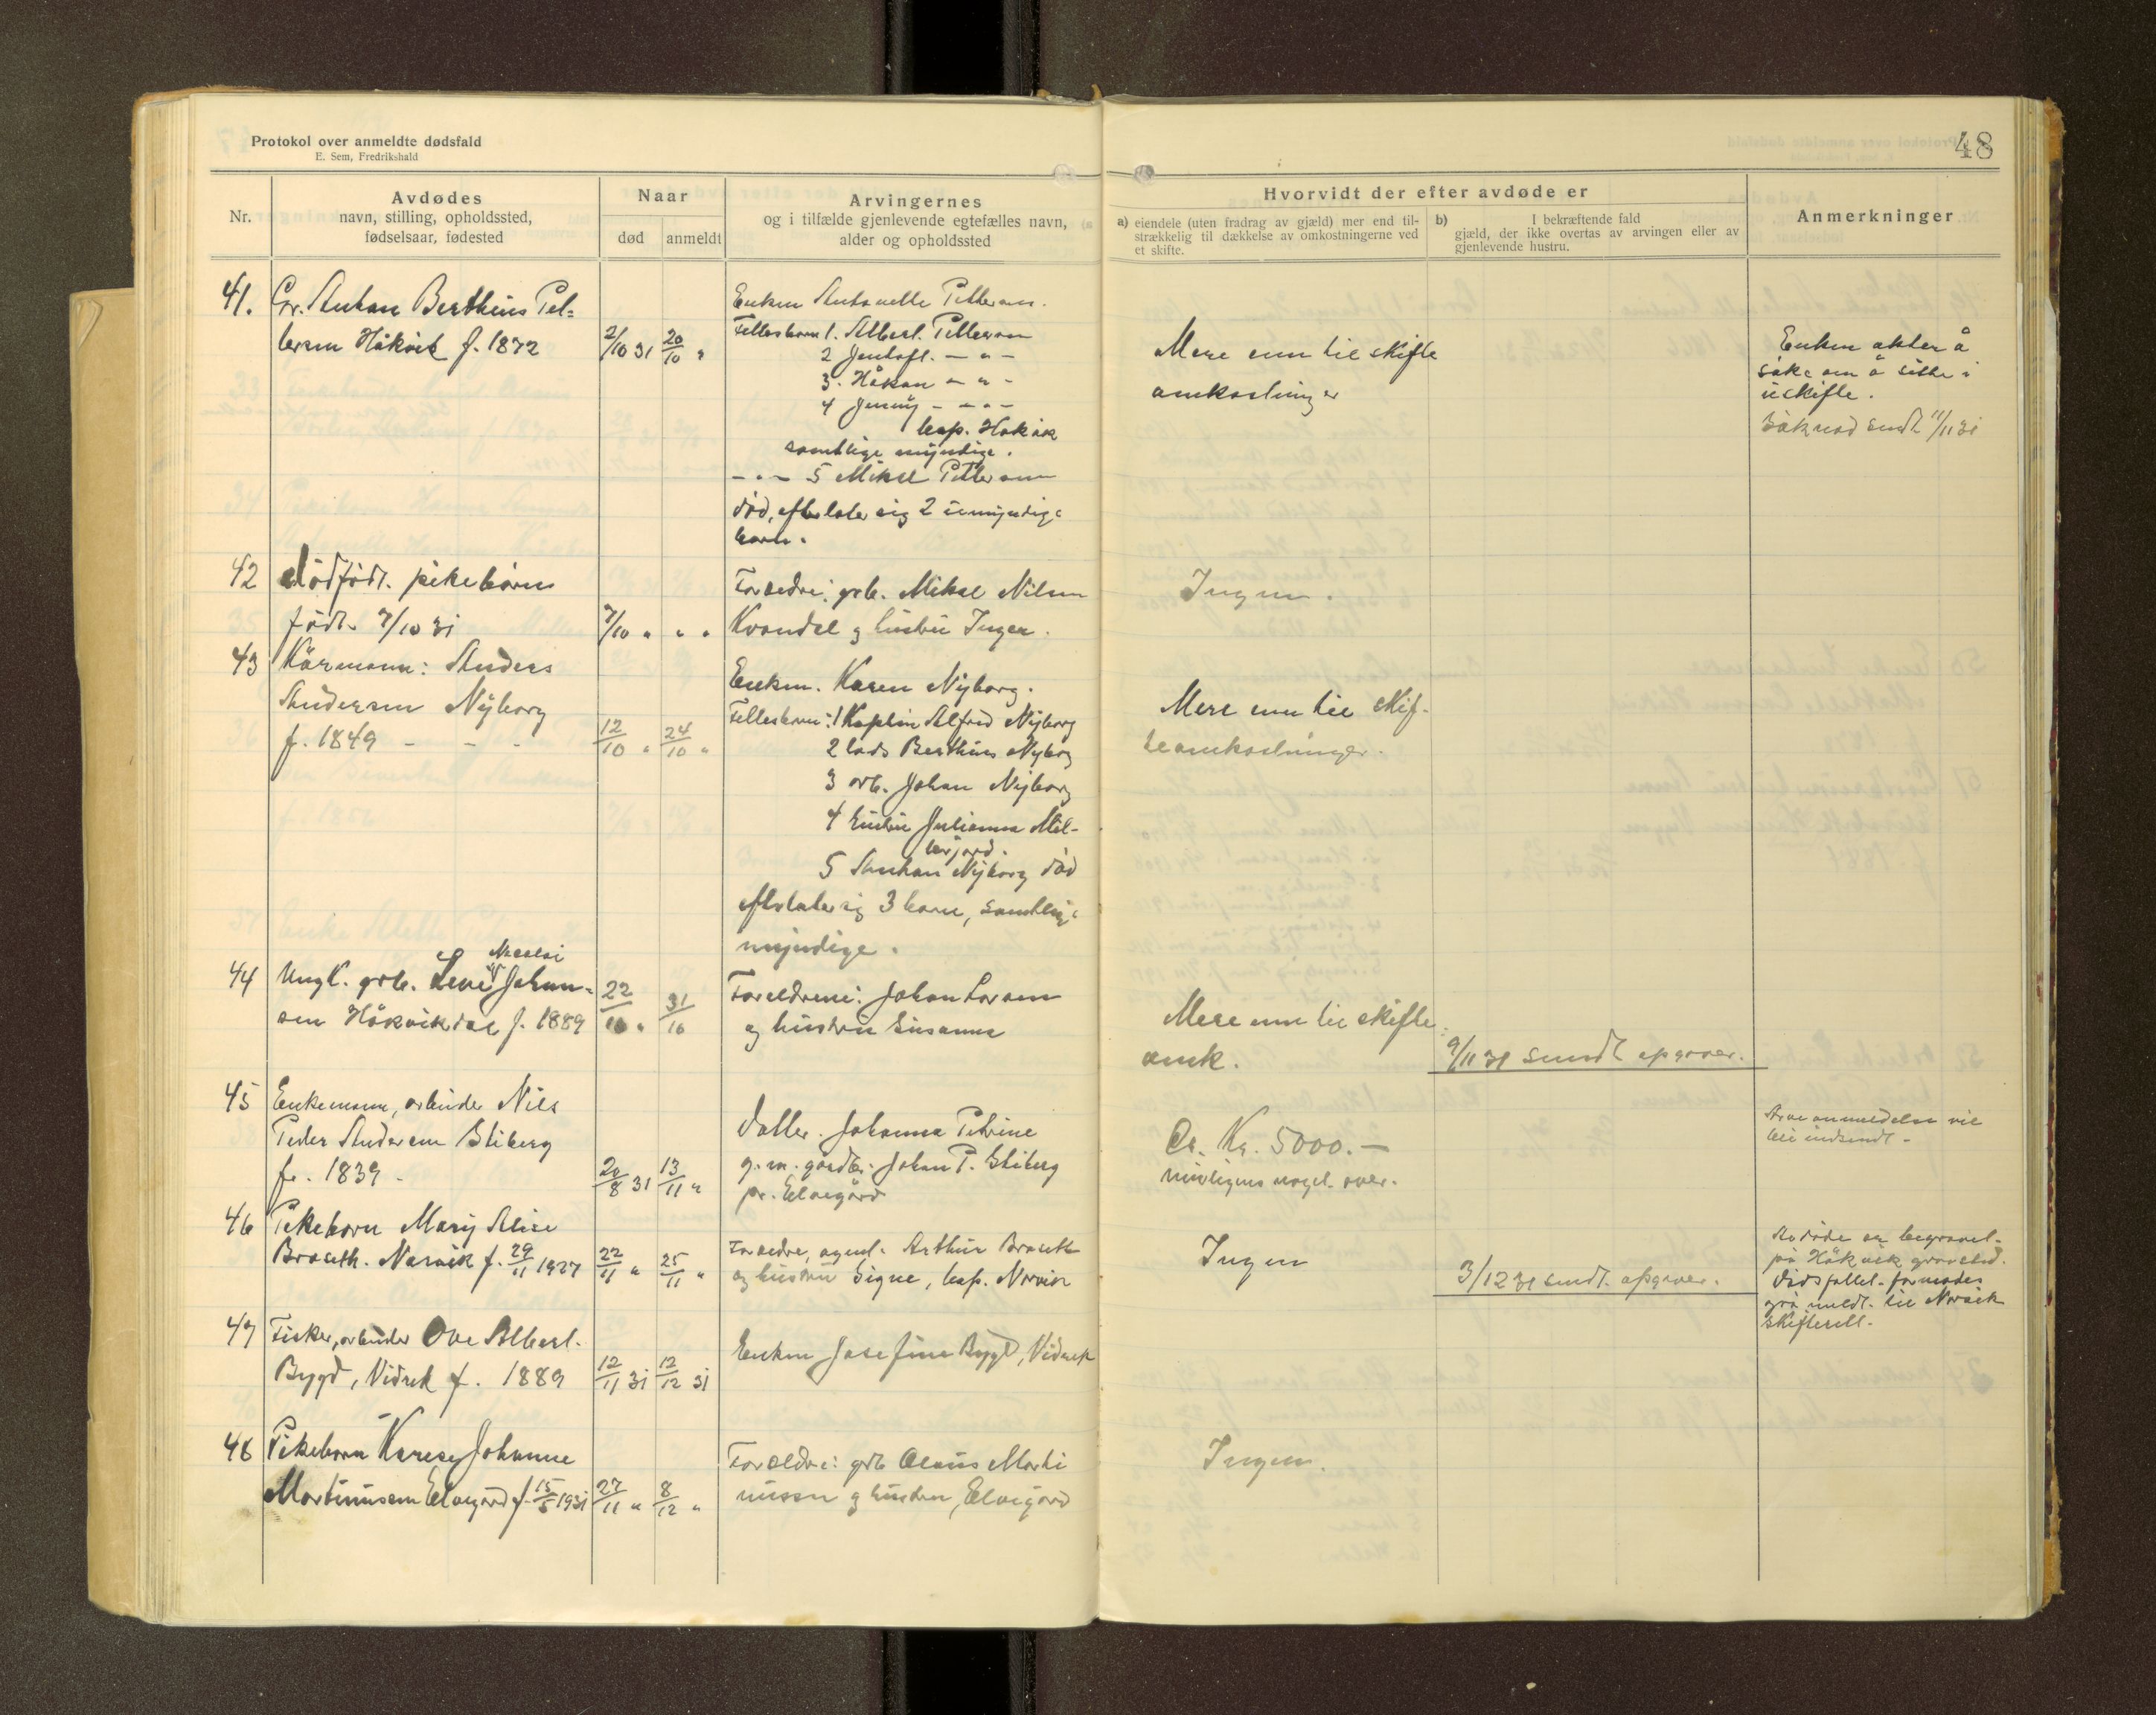 Protokol over anmeldte dødsfald
E. Sem, Fredrikshald
48
Nr.
Avdødes
navn, stilling, opholdssted,
fødselsaar, fødested
Naar
død
anmeldt
Arvingernes
og i tilfælde gjenlevende egtefælles navn,
alder og opholdssted
Hvorvidt der efter avdøde er
a) eiendele (uten fradrag av gjæld) mer end til-
strækkelig til dækkelse av omkostningerne ved
et skifte.
b) I bekræftende fald
gjæld, der ikke overtas av arvingen eller av
gjenlevende hustru.
Anmerkninger
41.
Anton Bertheus Pet=
tersen Håkvik f. 1872
2/10 31
20/10 "
Enken Antonette Pettersen.
Fellesbarn 1. Albert Pettersen
2 Jentoft. — " —
3. Håkon — " —
4 Jenny — " —
Håkvik
samtlige myndige.
— " — 5 Mikal Pettersen
død, efterlater sig 2 umyndige
barn.
Mere enn til skifte
omkostninger
Enken akter å
søke om å sitte i
uskifte.
Søknad sendt 11/11 31
42
dødfødt pikebarn
født 7/10 31
7/10 " " "
Foreldre: grb. Mikal Nilsen
Kvandal og hustru Inger.
Ingen.
43
Kårmann: Anders
Andersen Nyborg
f. 1849 - - -
12/10 "
24/10 "
Enken. Karen Nyborg.
Fellesbarn: 1 Kaptein Alfred Nyborg
2 lods Berthius Nyborg
3 arb. Johan Nyborg
4 hustru Julianna Mel-
lerjord.
5 Anton Nyborg død
efterlater sig 3 barn, samtlige
myndige.
Mere enn til skif-
teomkostninger.
44
Ungk. grb. Levi Johan-
sen Håkvikdal f. 1889
22/10 "
31/10
Foreldrene: Johan Larsen
og hustru Susanna
Mere enn til skifte
omk.
9/11 31 sendt opgaver.
45
Enkemann, arbeider Nils
Peder Andersen Stiberg
f. 1839 -
20/8 31
13/11 "
Datter. Johanna Petrine
g. m. gårdbr. Johan P. Stiberg
pr. Elvegård
Ca. Kr. 5000.—
muligens noget over.
Arveanmeldelse vil
bli indsendt -
46
Pikebarn Mary Alise
Braseth. Narvik f. 29/11 1927
22/11 "
25/11 "
Foreldre, agent. Arthur Braseth
og hustru Signe, Narvik
Ingen
3/12 31 sendt opgaver.
Avdøde er begravet
på Håkvik gravsted.
Dødsfallet formodes
også meldt til Narvik
skifterett.
47
Fisker, arbeider Ove Albert
Bygd, Vidrek f. 1889
12/11 31
12/12 31
Enken Josefine Bygd, Vidrek
48
Pikebarn Karese Johanne
Martinussen Elvegård f. 15/5 1931
27/11 "
8/12 "
Foreldre: grb Olaus Marti
nussen og hustru, Elvegård
Ingen.